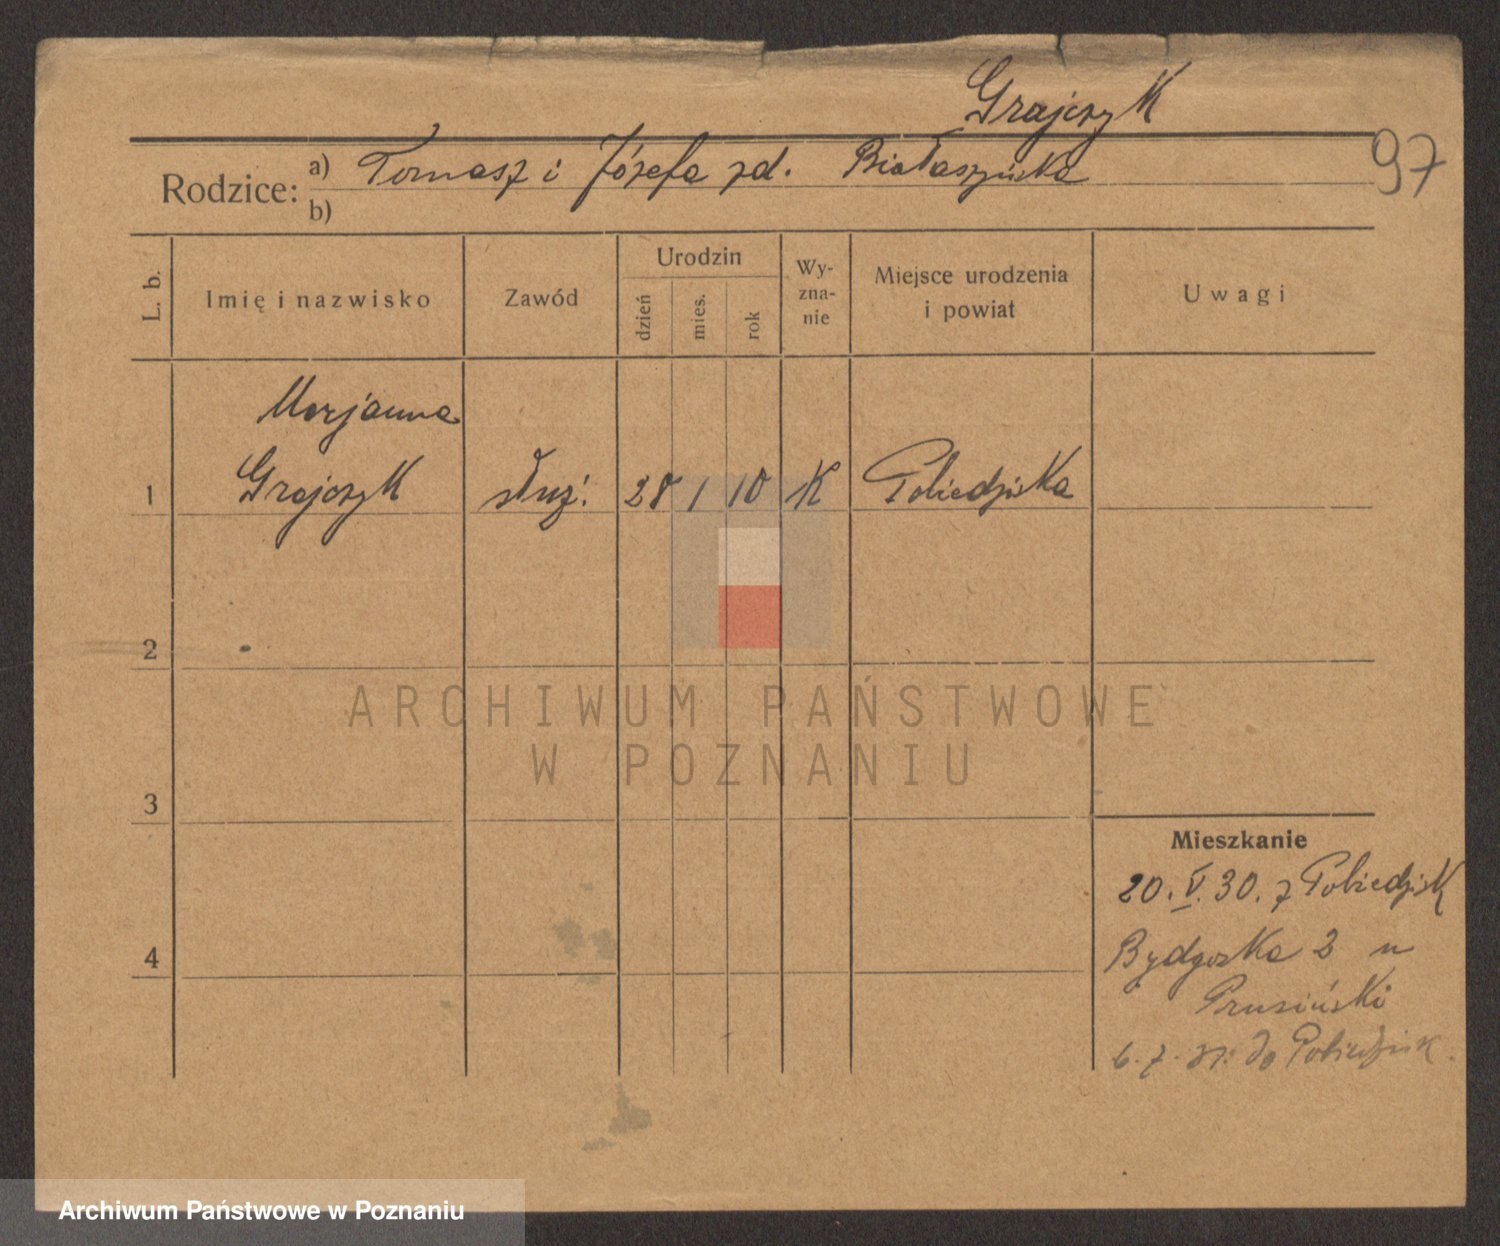 Grajczyk
97
Rodzice: a) Tomasz i Józefa zd. Białaszyńska
b)
L. b.
Imię i nazwisko
Zawód
Urodzin
dzień
mies.
rok
Wy-
zna-
nie
Miejsce urodzenia
i powiat
Uwagi
Marjanna
1 Grajczyk służ. 28 1 10 K Pobiedziska
2
3
4
Mieszkanie
20. V. 30. z Pobiedzisk
Bydgoska 3 u
Prusiński
6. 7. 31. do Pobiedzisk.
ARCHIWUM PAŃSTWOWE
W POZNANIU
Archiwum Państwowe w Poznaniu